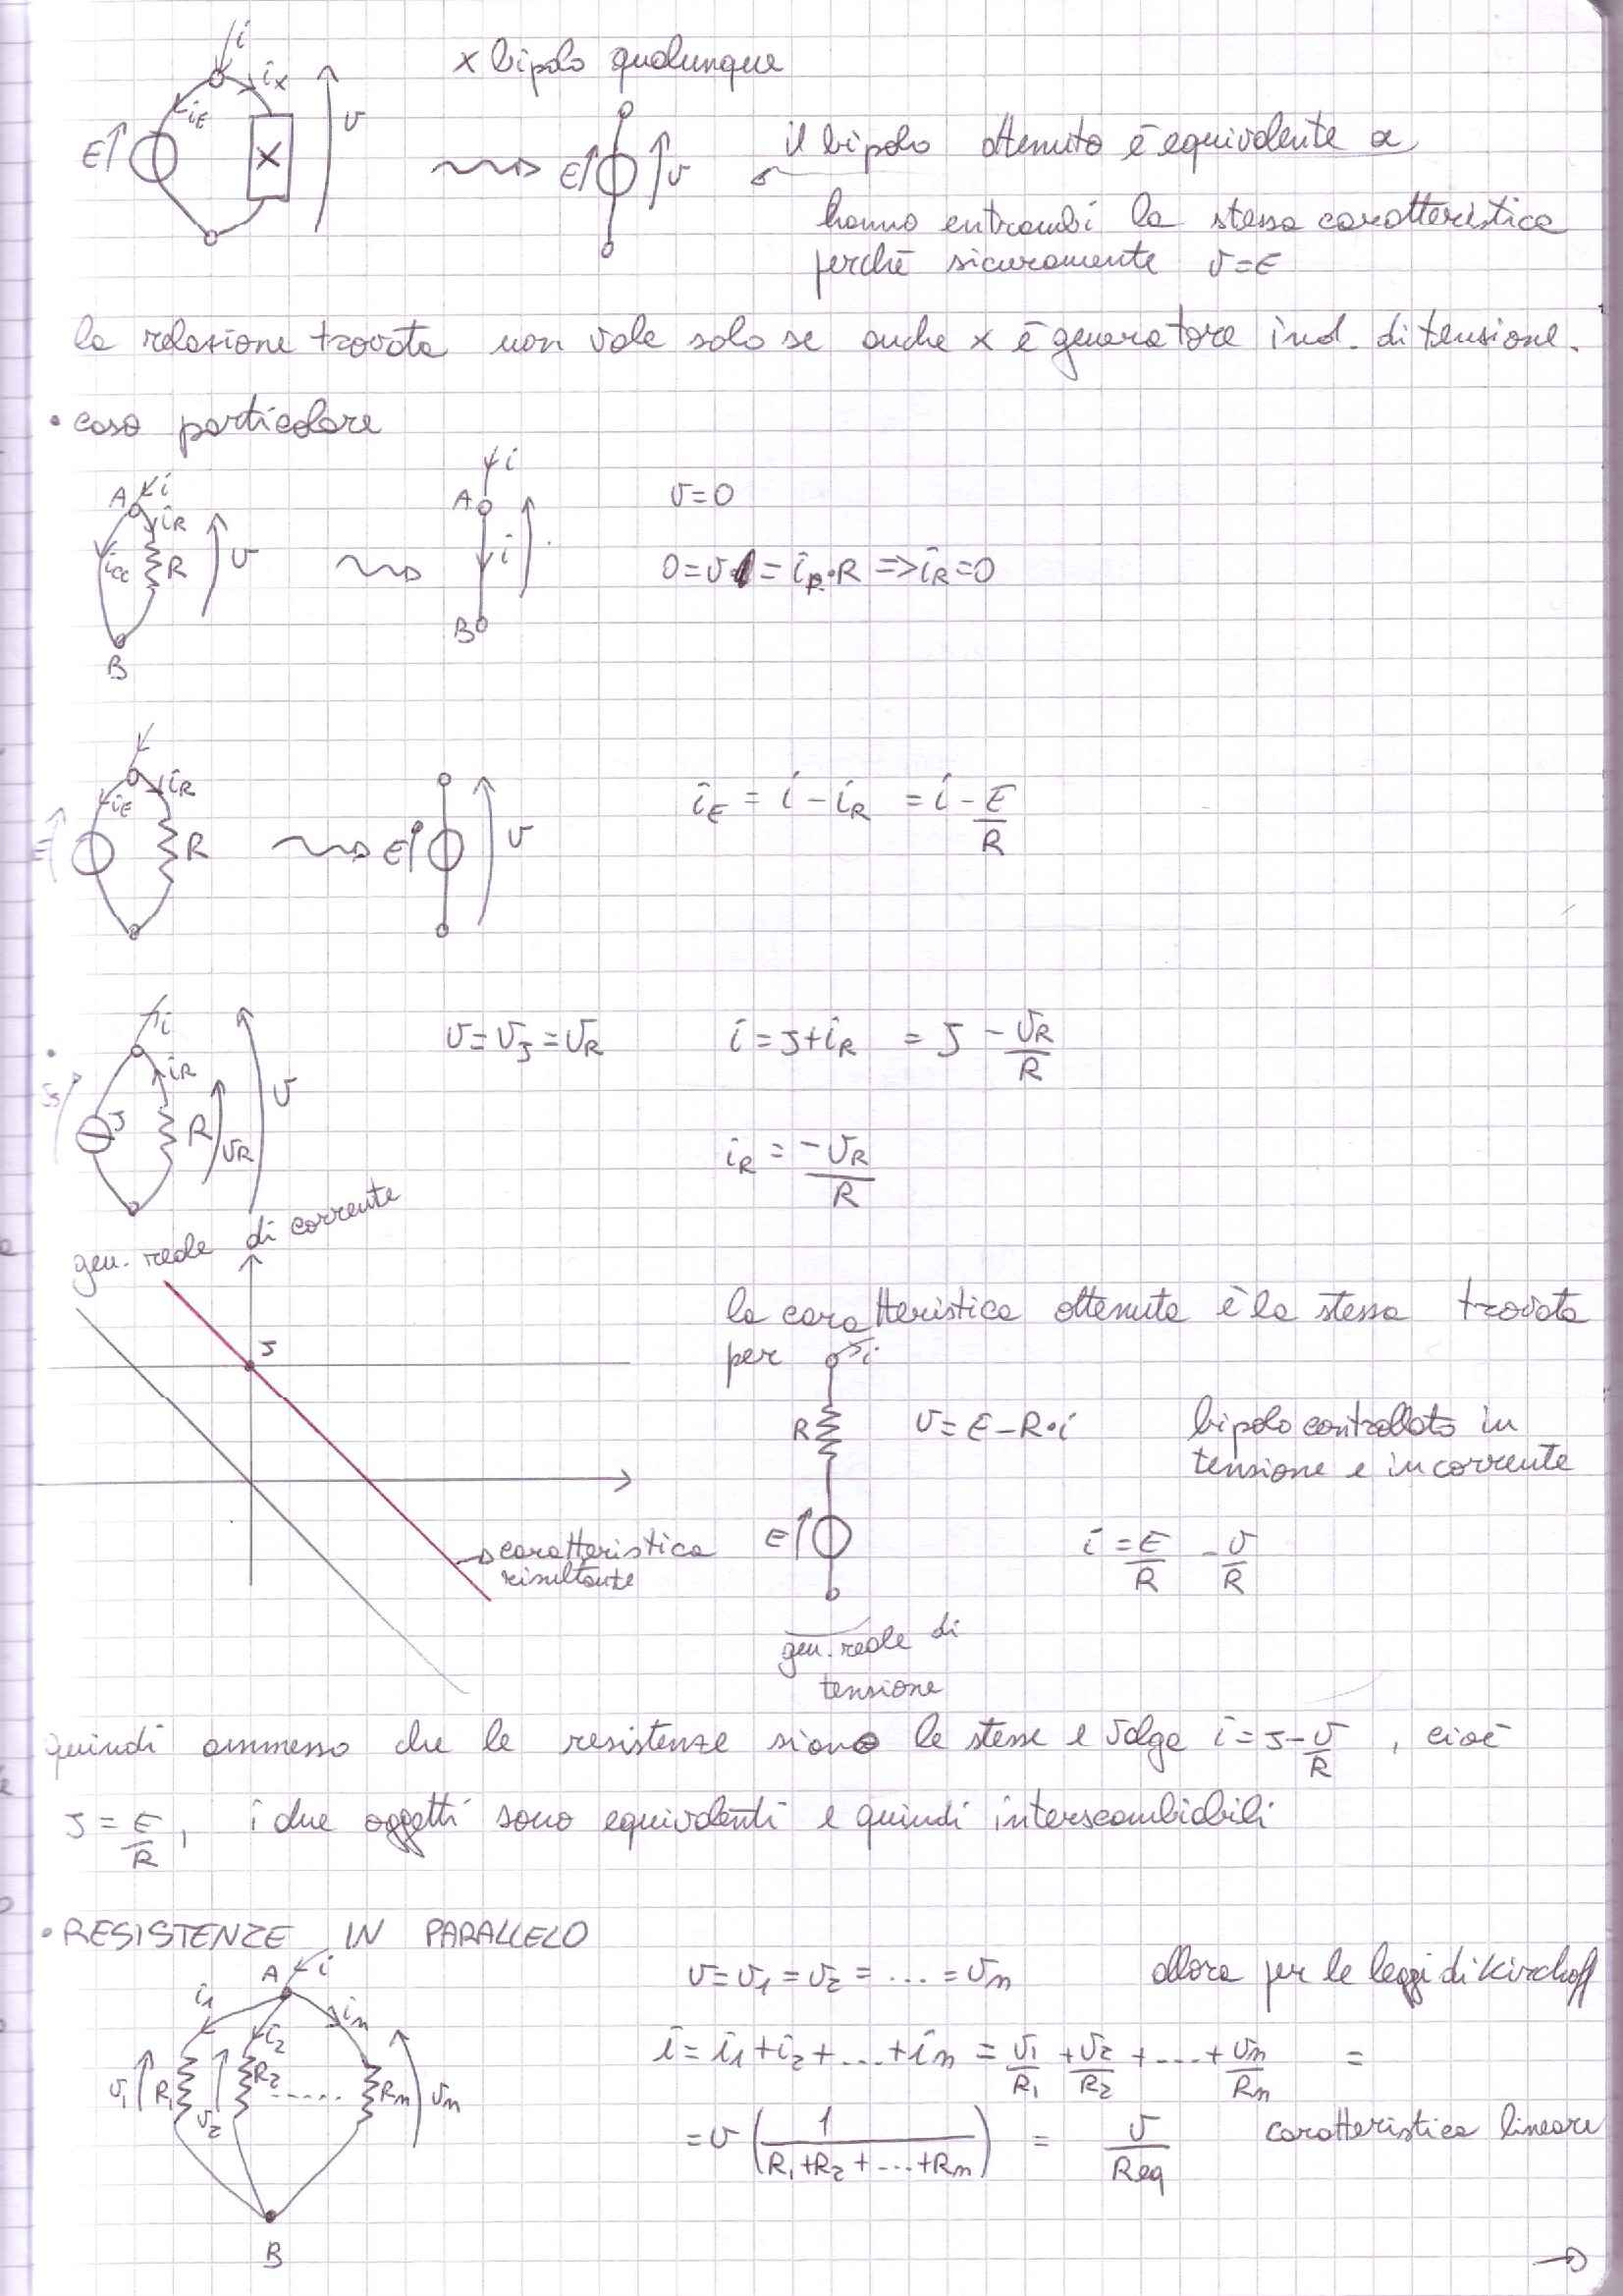 i
x bipolo qualunque
iE
ix
E
X
v
E
v
il bipolo ottenuto è equivalente a
hanno entrambi la stessa caratteristica
perchè sicuramente v=E
la relazione trovata non vale solo se anche x è generatore ind. di tensione.
• caso particolare
A i
iR
icc
R
v
B
i
A
i
B
v=0
0=v = iR·R => iR=0
iE
iR
E
R
E
v
iE = i - iR = i - E/R
i
iR
J
R
vR
v
v=vJ=vR
i = J+iR = J - vR/R
iR = -vR/R
gen. reale di corrente
J
caratteristica
risultante
la caratteristica ottenuta è la stessa trovata
per
i
R
E
v=E-R·i
bipolo controllato in
tensione e in corrente
i = E/R - v/R
gen. reale di
tensione
quindi ammesso che le resistenze siano le stesse e valga i=J-v/R , cioè
J=E/R, i due oggetti sono equivalenti e quindi interscambiabili
• RESISTENZE IN PARALLELO
A i
i1
i2
in
v1
R1
v2
R2
.....
Rn
vn
B
v=v1=v2=...=vn allora per le leggi di Kirchoff
i=i1+i2+...+in = v1/R1 + v2/R2 +...+ vn/Rn =
=v (1/(R1+R2+...+Rn)) = v/Req caratteristica lineare